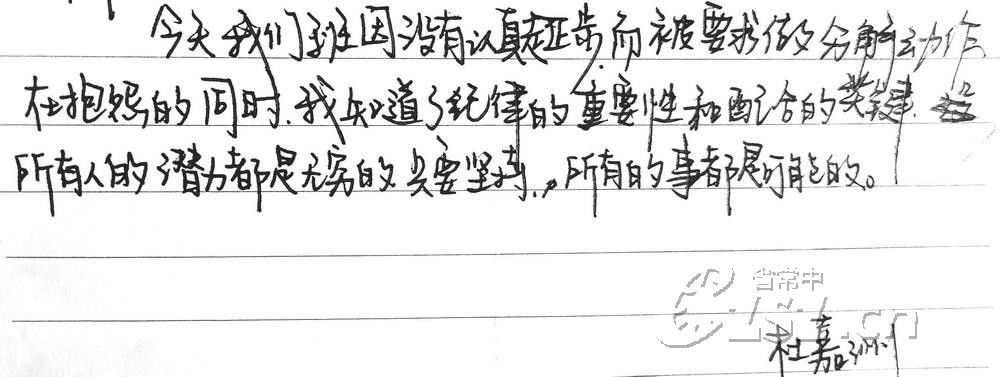 今天我们班因没有认真走正步,而被要求做分解动作
在抱怨的同时,我知道了纪律的重要性和配合的关键.
所有人的潜力都是无穷的只要坚持,所有的事都是可能的。
省常中
杜嘉洲